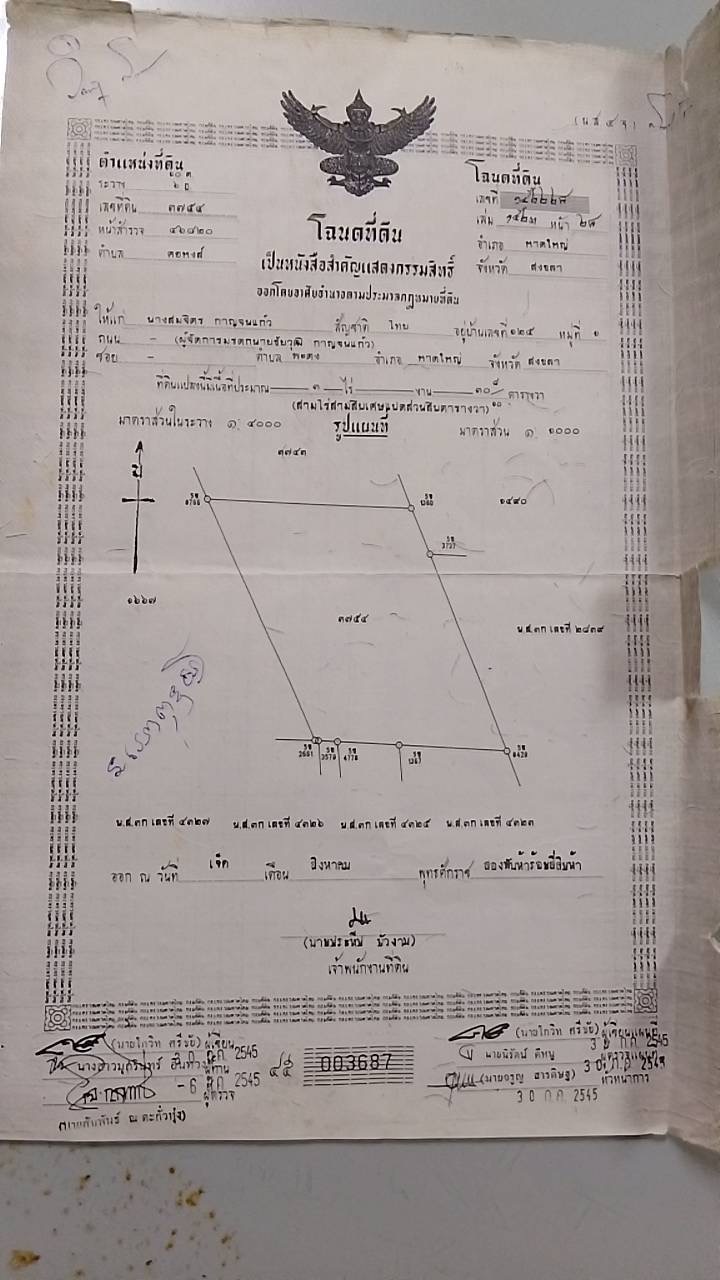 (น ส ๔ จ)
ตำแหน่งที่ดิน
ระวาง
เลขที่ดิน ๓๗๕๔
หน้าสำรวจ ๔๖๘๒๐
ตำบล คอหงส์
โฉนดที่ดิน
เลขที่
เล่ม หน้า ๒๘
อำเภอ หาดใหญ่
จังหวัด สงขลา
โฉนดที่ดิน
เป็นหนังสือสำคัญแสดงกรรมสิทธิ์
ออกโดยอาศัยอำนาจตามประมวลกฎหมายที่ดิน
ให้แก่ นางสมจิตร กาญจนแก้ว สัญชาติ ไทย อยู่บ้านเลขที่ ๑๒๕ หมู่ที่ ๑
ถนน - (ผู้จัดการมรดกนายชัยวุฒิ กาญจนแก้ว)
ซอย - ตำบล พะตง อำเภอ หาดใหญ่ จังหวัด สงขลา
ที่ดินแปลงนี้มีเนื้อที่ประมาณ ๓ ไร่ - งาน ๓๐ ๘/๑๐ ตารางวา
(สามไร่สามสิบเศษแปดส่วนสิบตารางวา)
มาตราส่วนในระวาง ๑: ๔๐๐๐ รูปแผนที่ มาตราส่วน ๑: ๑๐๐๐
๓๗๔๓
น
๕ข
5ข
1360
๑๔๙๐
5ข
3737
๑๖๖๗
๓๗๕๔
น.ส.๓ก เลขที่ ๒๘๓๙
5ข
2601
5ข
3579
5ข
4778
5ข
1367
5ข
8429
น.ส.๓ก เลขที่ ๔๓๒๗ น.ส.๓ก เลขที่ ๔๓๒๖ น.ส.๓ก เลขที่ ๔๓๒๕ น.ส.๓ก เลขที่ ๔๓๒๓
ออก ณ วันที่ เจ็ด เดือน สิงหาคม พุทธศักราช สองพันห้าร้อยสี่สิบห้า
(นายประทีป บัวงาม)
เจ้าพนักงานที่ดิน
(นายโกวิท ศรีชัย) ผู้เขียน
2545
- 6 2545
ผู้ตรวจ
๔๕
003687
(นายโกวิท ศรีชัย) ผู้เขียนแผนที่
ก ค 2545
นายนิรัตน์ ดีหนู
(นายจรูญ สารดิษฐ) หัวหน้าการ
3 0 ก ค 2545
3 0 ก ค 2545